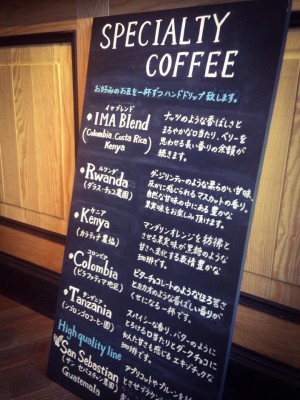 SPECIALTY
COFFEE
お好みのお豆を一杯ずつハンドドリップ致します。
イマブレンド
• IMA Blend
(Colombia. Costa Rica)
Kenya
ナッツのような香ばしさと
まろやかな口当たり、ベリーを
思わせる長い香りの余韻が
続きます。
ルワンダ
• Rwanda
ダージリンティーのような柔らかい甘味
ほかに感じられるマスカットの香り。
自然な甘味の中にある豊かな
果実味をお楽しみ頂けます。
ケニア
• Kenya
マンダリンオレンジを彷彿と
させる果実味が黒糖のような
甘さへ変化する表情豊かな
珈琲です。
コロンビア
• Colombia
ビターチョコレートのようなほろ苦さ
とカカオのような香ばしい香りが
くせになる一杯です。
タンザニア
• Tanzania
(ンゴロンゴロコーヒー園)
スパイシーな香り、バターのように
とろける口当たりとダークチョコに
似た甘さも感じるエキゾチックな
珈琲です。
High quality line
San Sebastian
(サン・セバスチャン農園)
Guatemala